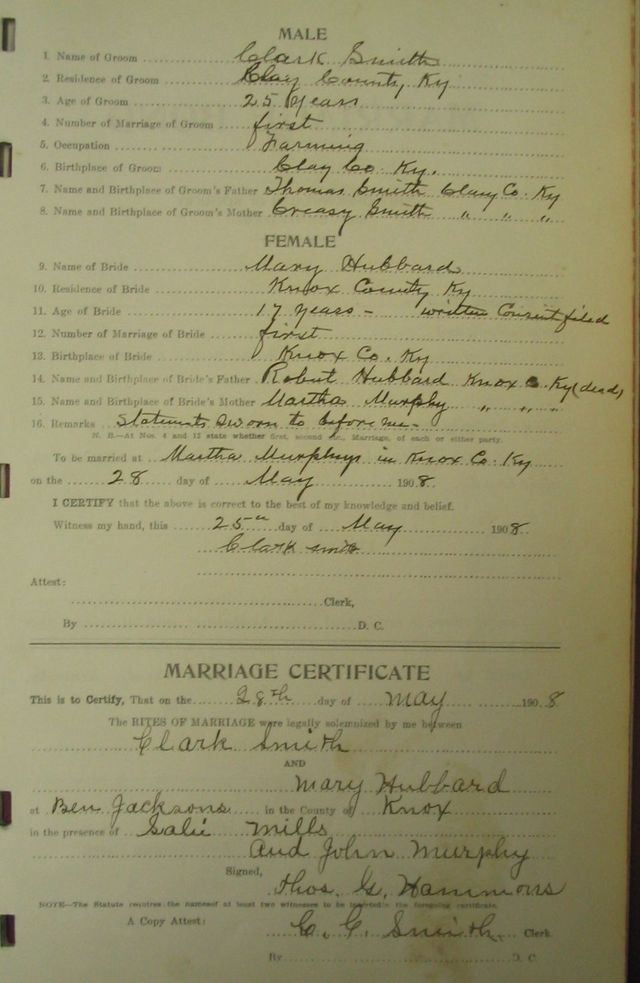 MALE
1. Name of Groom Clark Smith
2. Residence of Groom Clay County, Ky
3. Age of Groom 25 years
4. Number of Marriage of Groom first
5. Occupation Farming
6. Birthplace of Groom Clay Co. Ky.
7. Name and Birthplace of Groom's Father Thomas Smith Clay Co. Ky
8. Name and Birthplace of Groom's Mother Creasy Smith " " "
FEMALE
9. Name of Bride Mary Hubbard
10. Residence of Bride Knox County Ky
11. Age of Bride 17 years - written Consent filed
12. Number of Marriage of Bride first
13. Birthplace of Bride Knox Co. Ky
14. Name and Birthplace of Bride's Father Robert Hubbard Knox Co. Ky (dead)
15. Name and Birthplace of Bride's Mother Martha Murphy " " "
16. Remarks Statements sworn to before me-
N. B.—At Nos. 4 and 12 state whether first, second etc., Marriage, of each or either party.
To be married at Martha Murphys in Knox Co. Ky
on the 28 day of May 1908.
I CERTIFY that the above is correct to the best of my knowledge and belief.
Witness my hand, this 25th day of May 1908.
Clark Smith
Attest:
Clerk,
By D. C.
MARRIAGE CERTIFICATE
This is to Certify, That on the 28th day of May 1908
The RITES OF MARRIAGE were legally solemnized by me between
Clark Smith
AND
Mary Hubbard
at Ben Jacksons in the County of Knox
in the presence of Mills
And John Murphy
Signed,
Thos. G. Hammons
NOTE—The Statute requires the names of at least two witnesses to be inserted in the foregoing certificate.
A Copy Attest: C. C. Smith Clerk
By D. C.